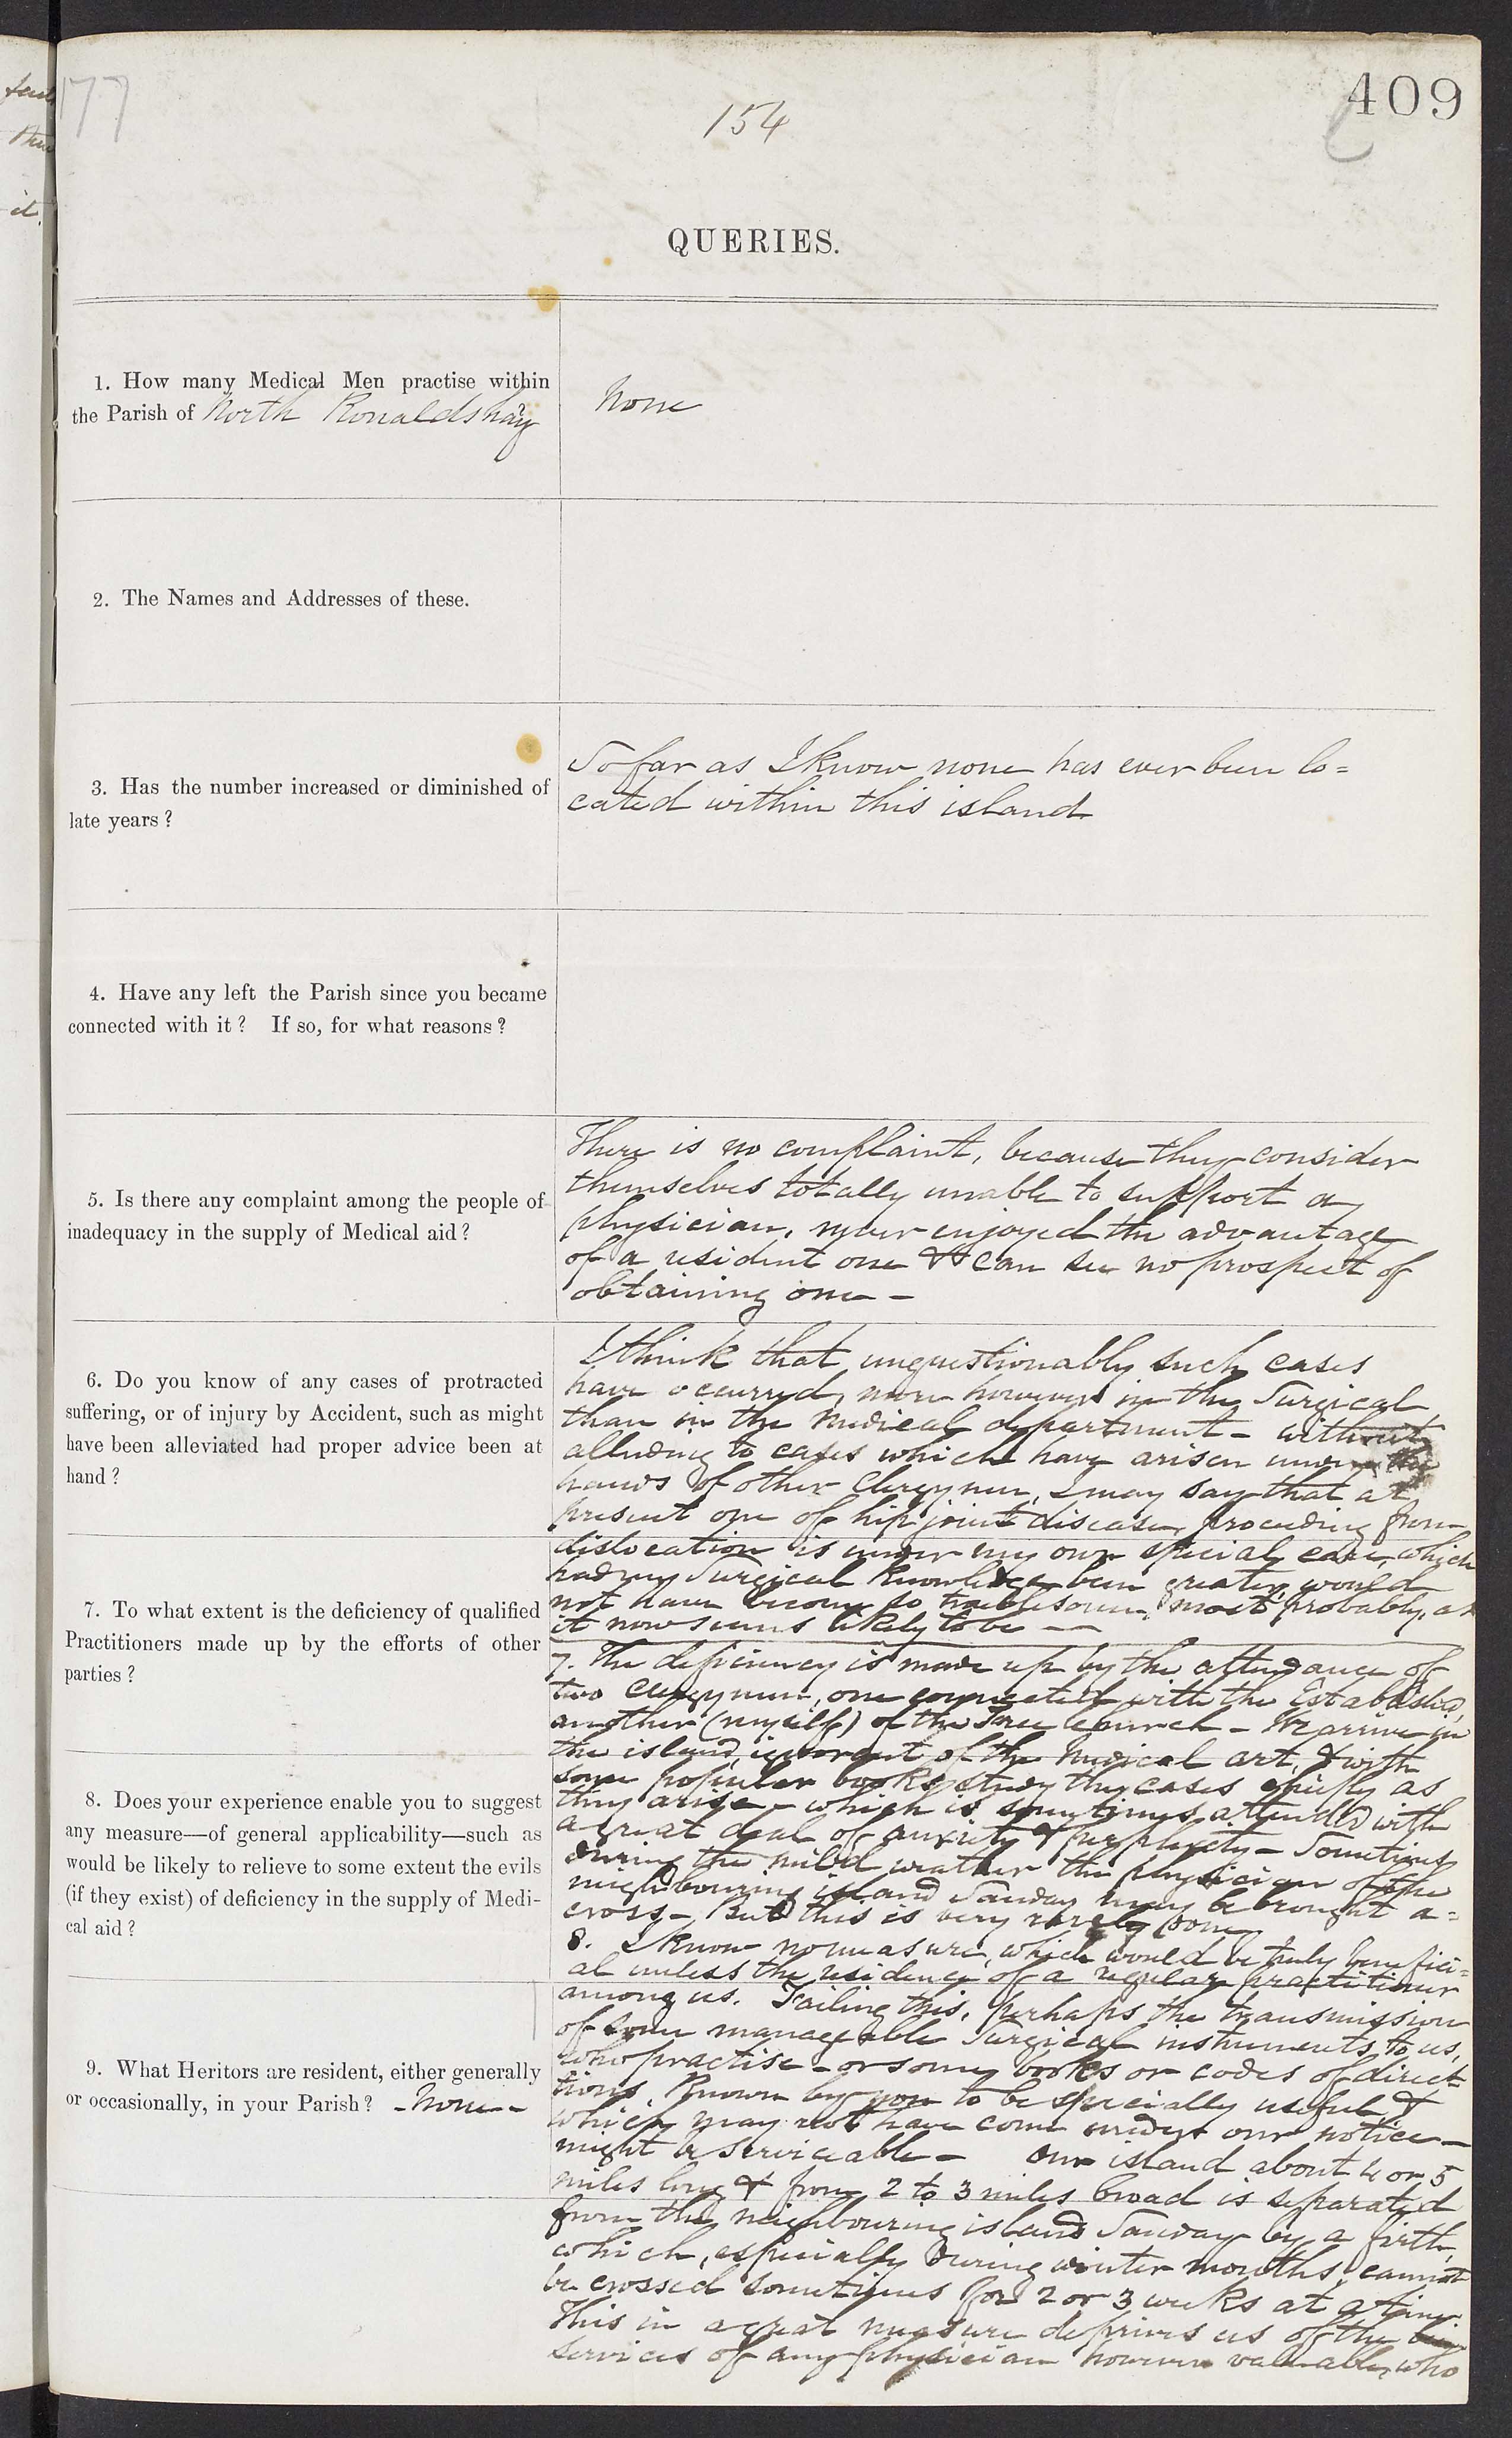 177
154
409
QUERIES.
1. How many Medical Men practise within
the Parish of North Ronaldshay
None
2. The Names and Addresses of these.
3. Has the number increased or diminished of
late years?
So far as I know none has ever been lo=
cated within this island
4. Have any left the Parish since you became
connected with it? If so, for what reasons?
5. Is there any complaint among the people of
inadequacy in the supply of Medical aid?
There is no complaint, because they consider
themselves totally unable to support a
physician, never enjoyed the advantage
of a resident one & can see no prospect of
obtaining one -
6. Do you know of any cases of protracted
suffering, or of injury by Accident, such as might
have been alleviated had proper advice been at
hand?
I think that unquestionably such cases
have occurred, more however in the Surgical
than in the medical department - without
alluding to cases which have arisen under the
hands of other Clergymen, I may say that at
present one of hip joint disease, proceeding from
dislocation is under my own special care, which
had my Surgical Knowledge been greater, would
not have become so troublesome, most probably, as
it now seems likely to be -
7. To what extent is the deficiency of qualified
Practitioners made up by the efforts of other
parties?
7. The deficiency is made up by the attendance of
two Clergymen, one connected with the Established,
another (myself) of the Free Church - We arrive in
the island, ignorant of the medical art, & with
some popular books, study the cases chiefly as
they arise - which is sometimes attended with
a great deal of anxiety & perplexity - Sometimes
during the mild weather the physician of the
neighbouring island Sanday may be brought a=
cross - But this is very rarely done
8. Does your experience enable you to suggest
any measure—of general applicability—such as
would be likely to relieve to some extent the evils
(if they exist) of deficiency in the supply of Medi-
cal aid?
8. I know no measure, which would be truly benefici=
al unless the residence of a regular practitioner
among us. Failing this, perhaps the transmission
of some manageable Surgical instruments to us,
who practise - or some books or codes of direct-
tions, known by you to be specially useful &
which may not have come under our notice -
might be serviceable - Our island about 4 or 5
miles long & from 2 to 3 miles broad is separated
from the neighbouring island Sanday by a firth,
which, especially during winter months, cannot
be crossed sometimes for 2 or 3 weeks at a time
This in a great measure deprives us of the
services of any physician however valuable, who
9. What Heritors are resident, either generally
or occasionally, in your Parish? - None -